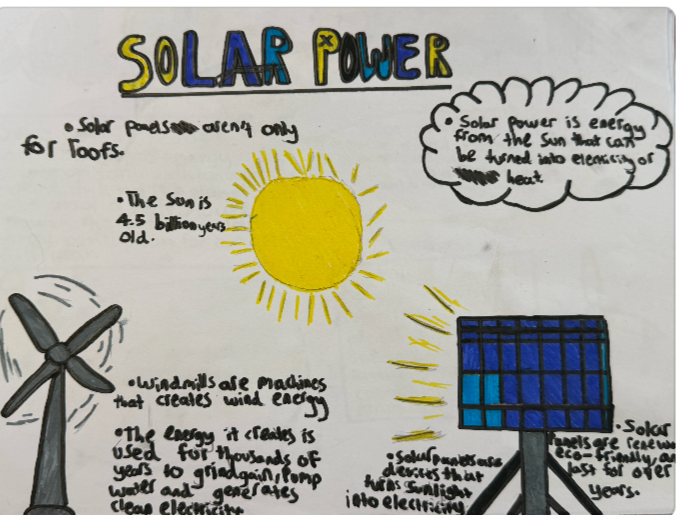 SOLAR POWER
• Solar panels aren't only
for roofs.
• Solar power is energy
from the sun that can
be turned into elecricity or
heat
• The sun is
4.5 billion years
old.
• Windmills are machines
that creates wind energy
• The energy it creates is
used for thousands of
years to grindgain, pump
water and generates
clean electricity
• Solar panels are
devices that
turns sunlight
into electricity
• Solar
panels are
eco-friendly, an
last for over
years.